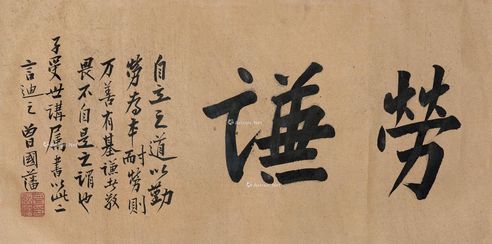 勞謙
自立之道以勤
勞為本耐勞則
万善有基謙者敬
畏不自是之谓也
子受世講屬書以此二
言迪之 曾國藩